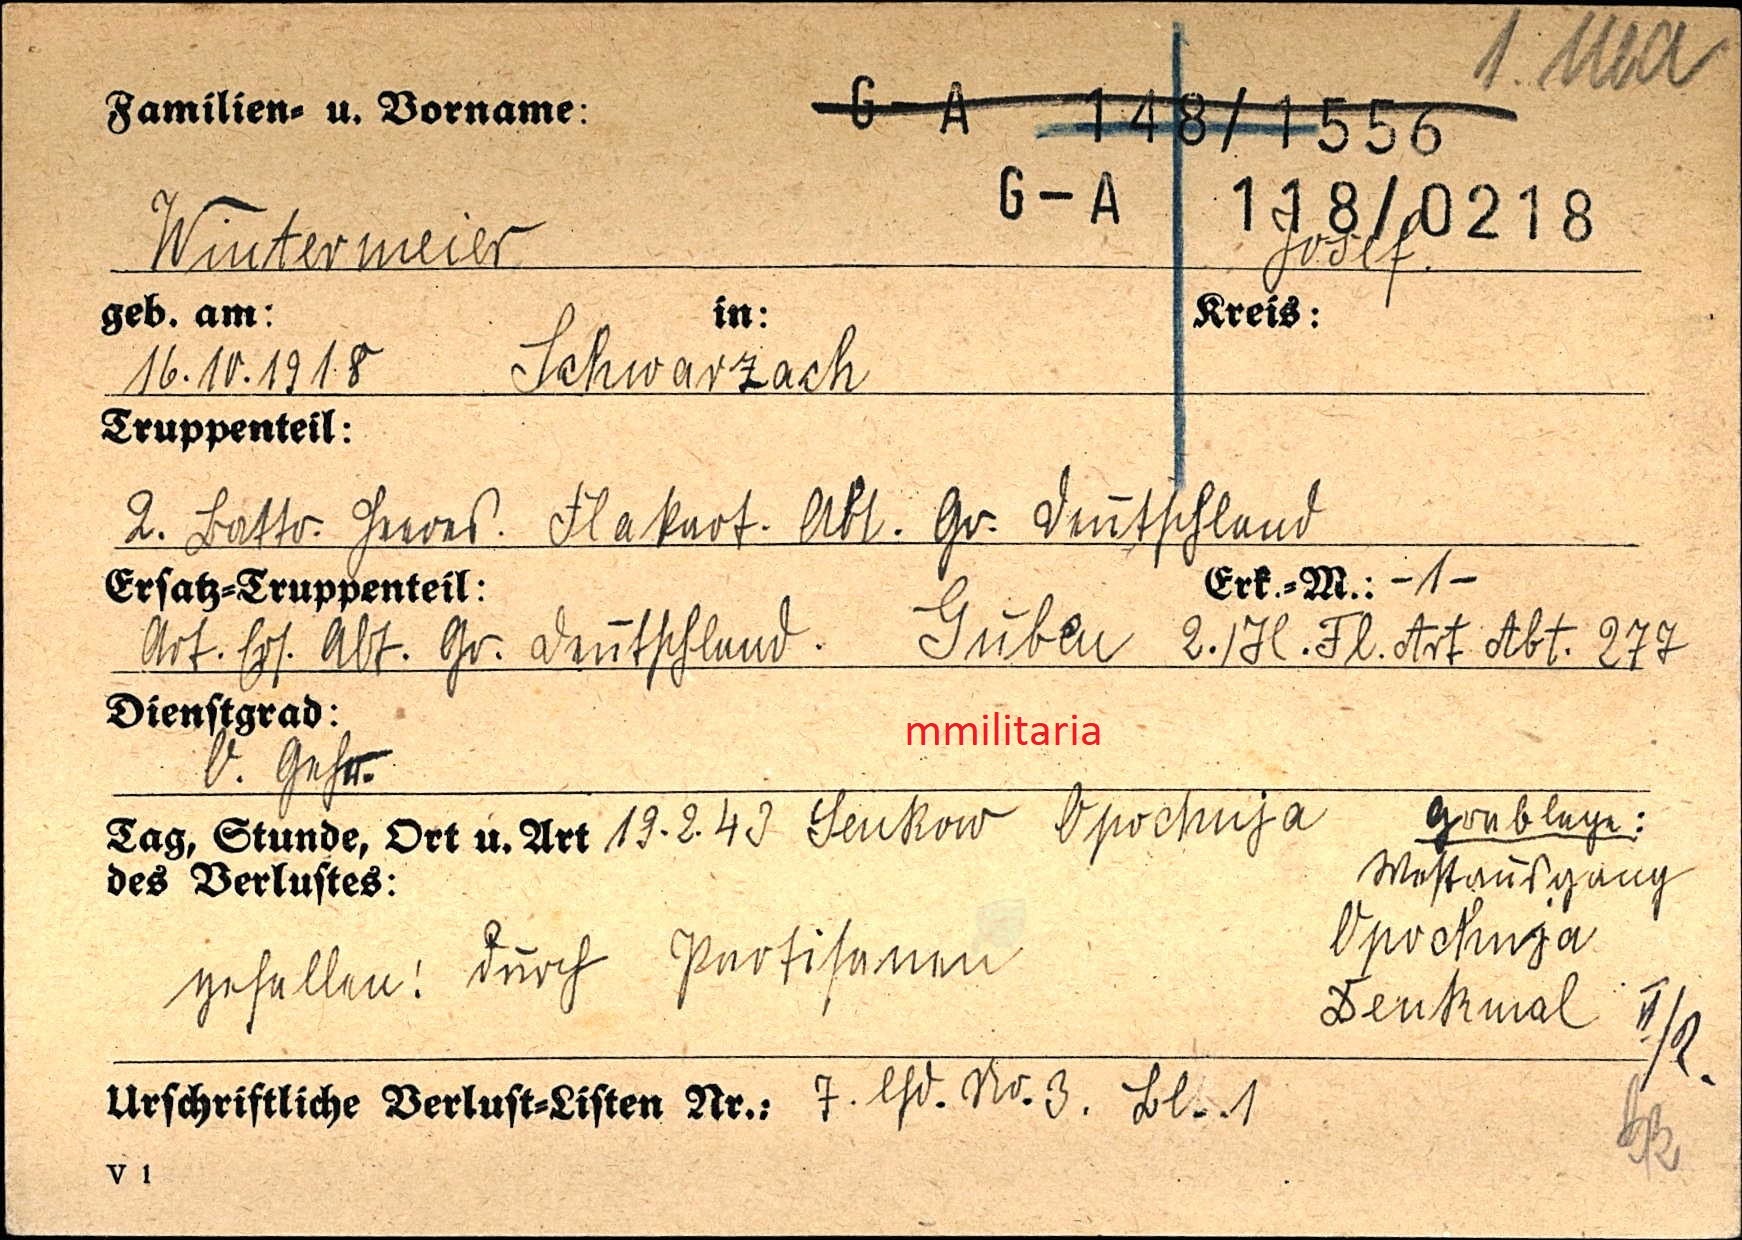 Familien- u. Vorname: G-A 148/1556
G-A 118/0218
Wintermeier Josef.
geb. am: in: Kreis:
16.10.1918 Schwarzach
Truppenteil:
2. Battr. Heeres. Flakart. Abt. Gr. Deutschland
Ersatz-Truppenteil: Erk.-M.: -1-
Art. Ers. Abt. Gr. Deutschland. Guben 2./H.Fl.Art Abt. 277
Dienstgrad:
O. Gefr.
mmilitaria
Tag, Stunde, Ort u. Art 19.2.43 Senkow Opochnja Grablage:
des Verlustes: Westausgang
gefallen! durch Partisanen Opochnja
Denkmal II/R.
Urschriftliche Verlust-Listen Nr.: 7. lfd. No. 3. Bl. 1
V 1